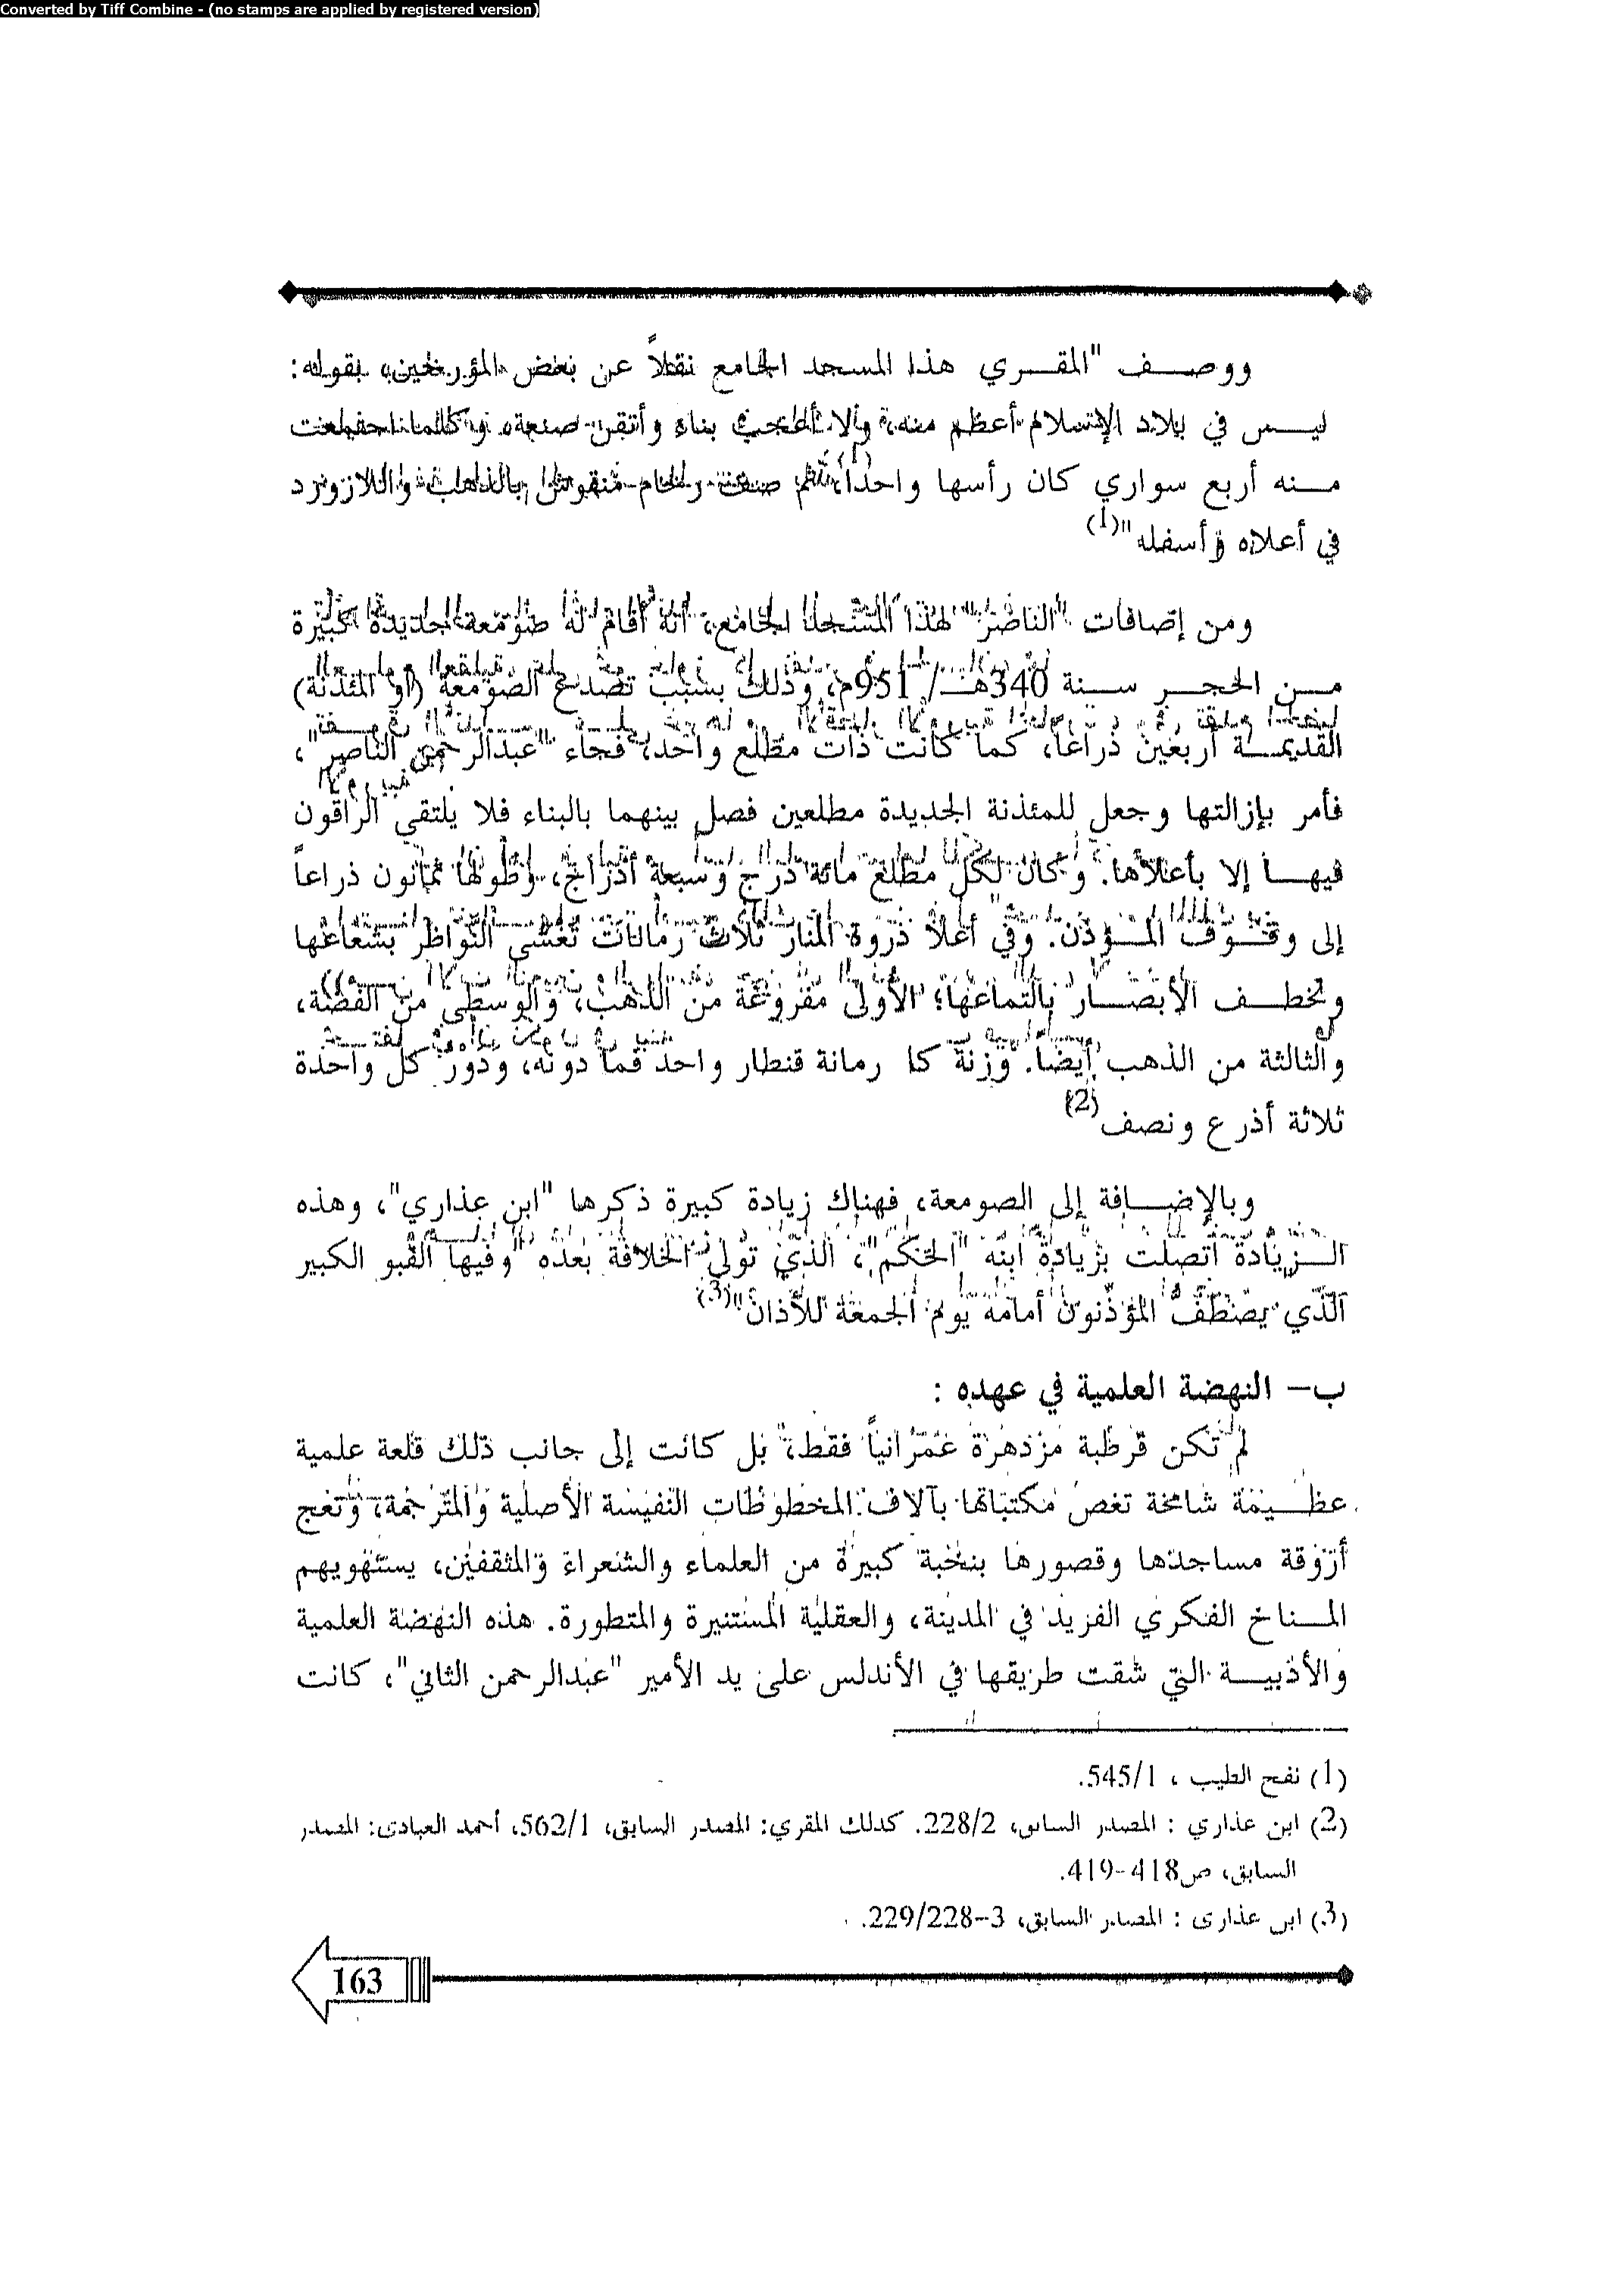 Converted by Tiff Combine - (no stamps are applied by registered version)
ووصف "المقري هذا المسجد الجامع نقلاً عن بعض المؤرخين، بقوله:
ليس في بلاد الإسلام أعظم منه، ولا أعجب بناء وأتقن صنعة، وكلما اجتمعت
منه أربع سواري كان رأسها واحداً، ثم صف رخام منقوش بالذهب واللازورد
في أعلاه وأسفله"(1)
ومن إضافات "الناصر" لهذا المسجد الجامع، أنه أقام له صومعة جديدة كبيرة
من الحجر سنة 340هـ/ 951م، وذلك بسبب تصدع الصومعة (أو المئذنة)
القديمة أربعين ذراعاً، كما كانت ذات مطلع واحد، فجاء "عبدالرحمن الناصر"،
فأمر بإزالتها وجعل للمئذنة الجديدة مطلعين فصل بينهما بالبناء فلا يلتقي الراقون
فيها إلا بأعلاها. وكان لكل مطلع مائة درج وسبعة أدراج، وطولها ثمانون ذراعاً
إلى وقوف المؤذن. وفي أعلا ذروة المنار ثلاث رمانات تغشى النواظر بشعاعها
وتخطف الأبصار بالتماعها؛ الأولى مفروغة من الذهب، والوسطى من الفضة،
والثالثة من الذهب أيضاً. وزنة كل رمانة قنطار واحد فما دونه، ودور كل واحدة
ثلاثة أذرع ونصف(2)
وبالإضافة إلى الصومعة، فهناك زيادة كبيرة ذكرها "ابن عذاري"، وهذه
الزيادة اتصلت بزيادة ابنه "الحكم"، الذي تولى الخلافة بعده "وفيها القبو الكبير
الذي يصطف المؤذنون أمامه يوم الجمعة للأذان"(3)
ب– النهضة العلمية في عهده :
لم تكن قرطبة مزدهرة عمرانياً فقط، بل كانت إلى جانب ذلك قلعة علمية
عظيمة شامخة تغص مكتباتها بآلاف المخطوطات النفيسة الأصلية والمترجمة، وتعج
أروقة مساجدها وقصورها بنخبة كبيرة من العلماء والشعراء والمثقفين، يستهويهم
المناخ الفكري الفريد في المدينة، والعقلية المستنيرة والمتطورة. هذه النهضة العلمية
والأدبية التي شقت طريقها في الأندلس على يد الأمير "عبدالرحمن الثاني"، كانت
(1) نفح الطيب ، 545/1.
(2) ابن عذاري : المصدر السابق، 228/2. كذلك المقري: المصدر السابق، 562/1، أحمد العبادي: المصدر
السابق، ص418-419.
(3) ابن عذاري : المصدر السابق، 3-229/228.
163